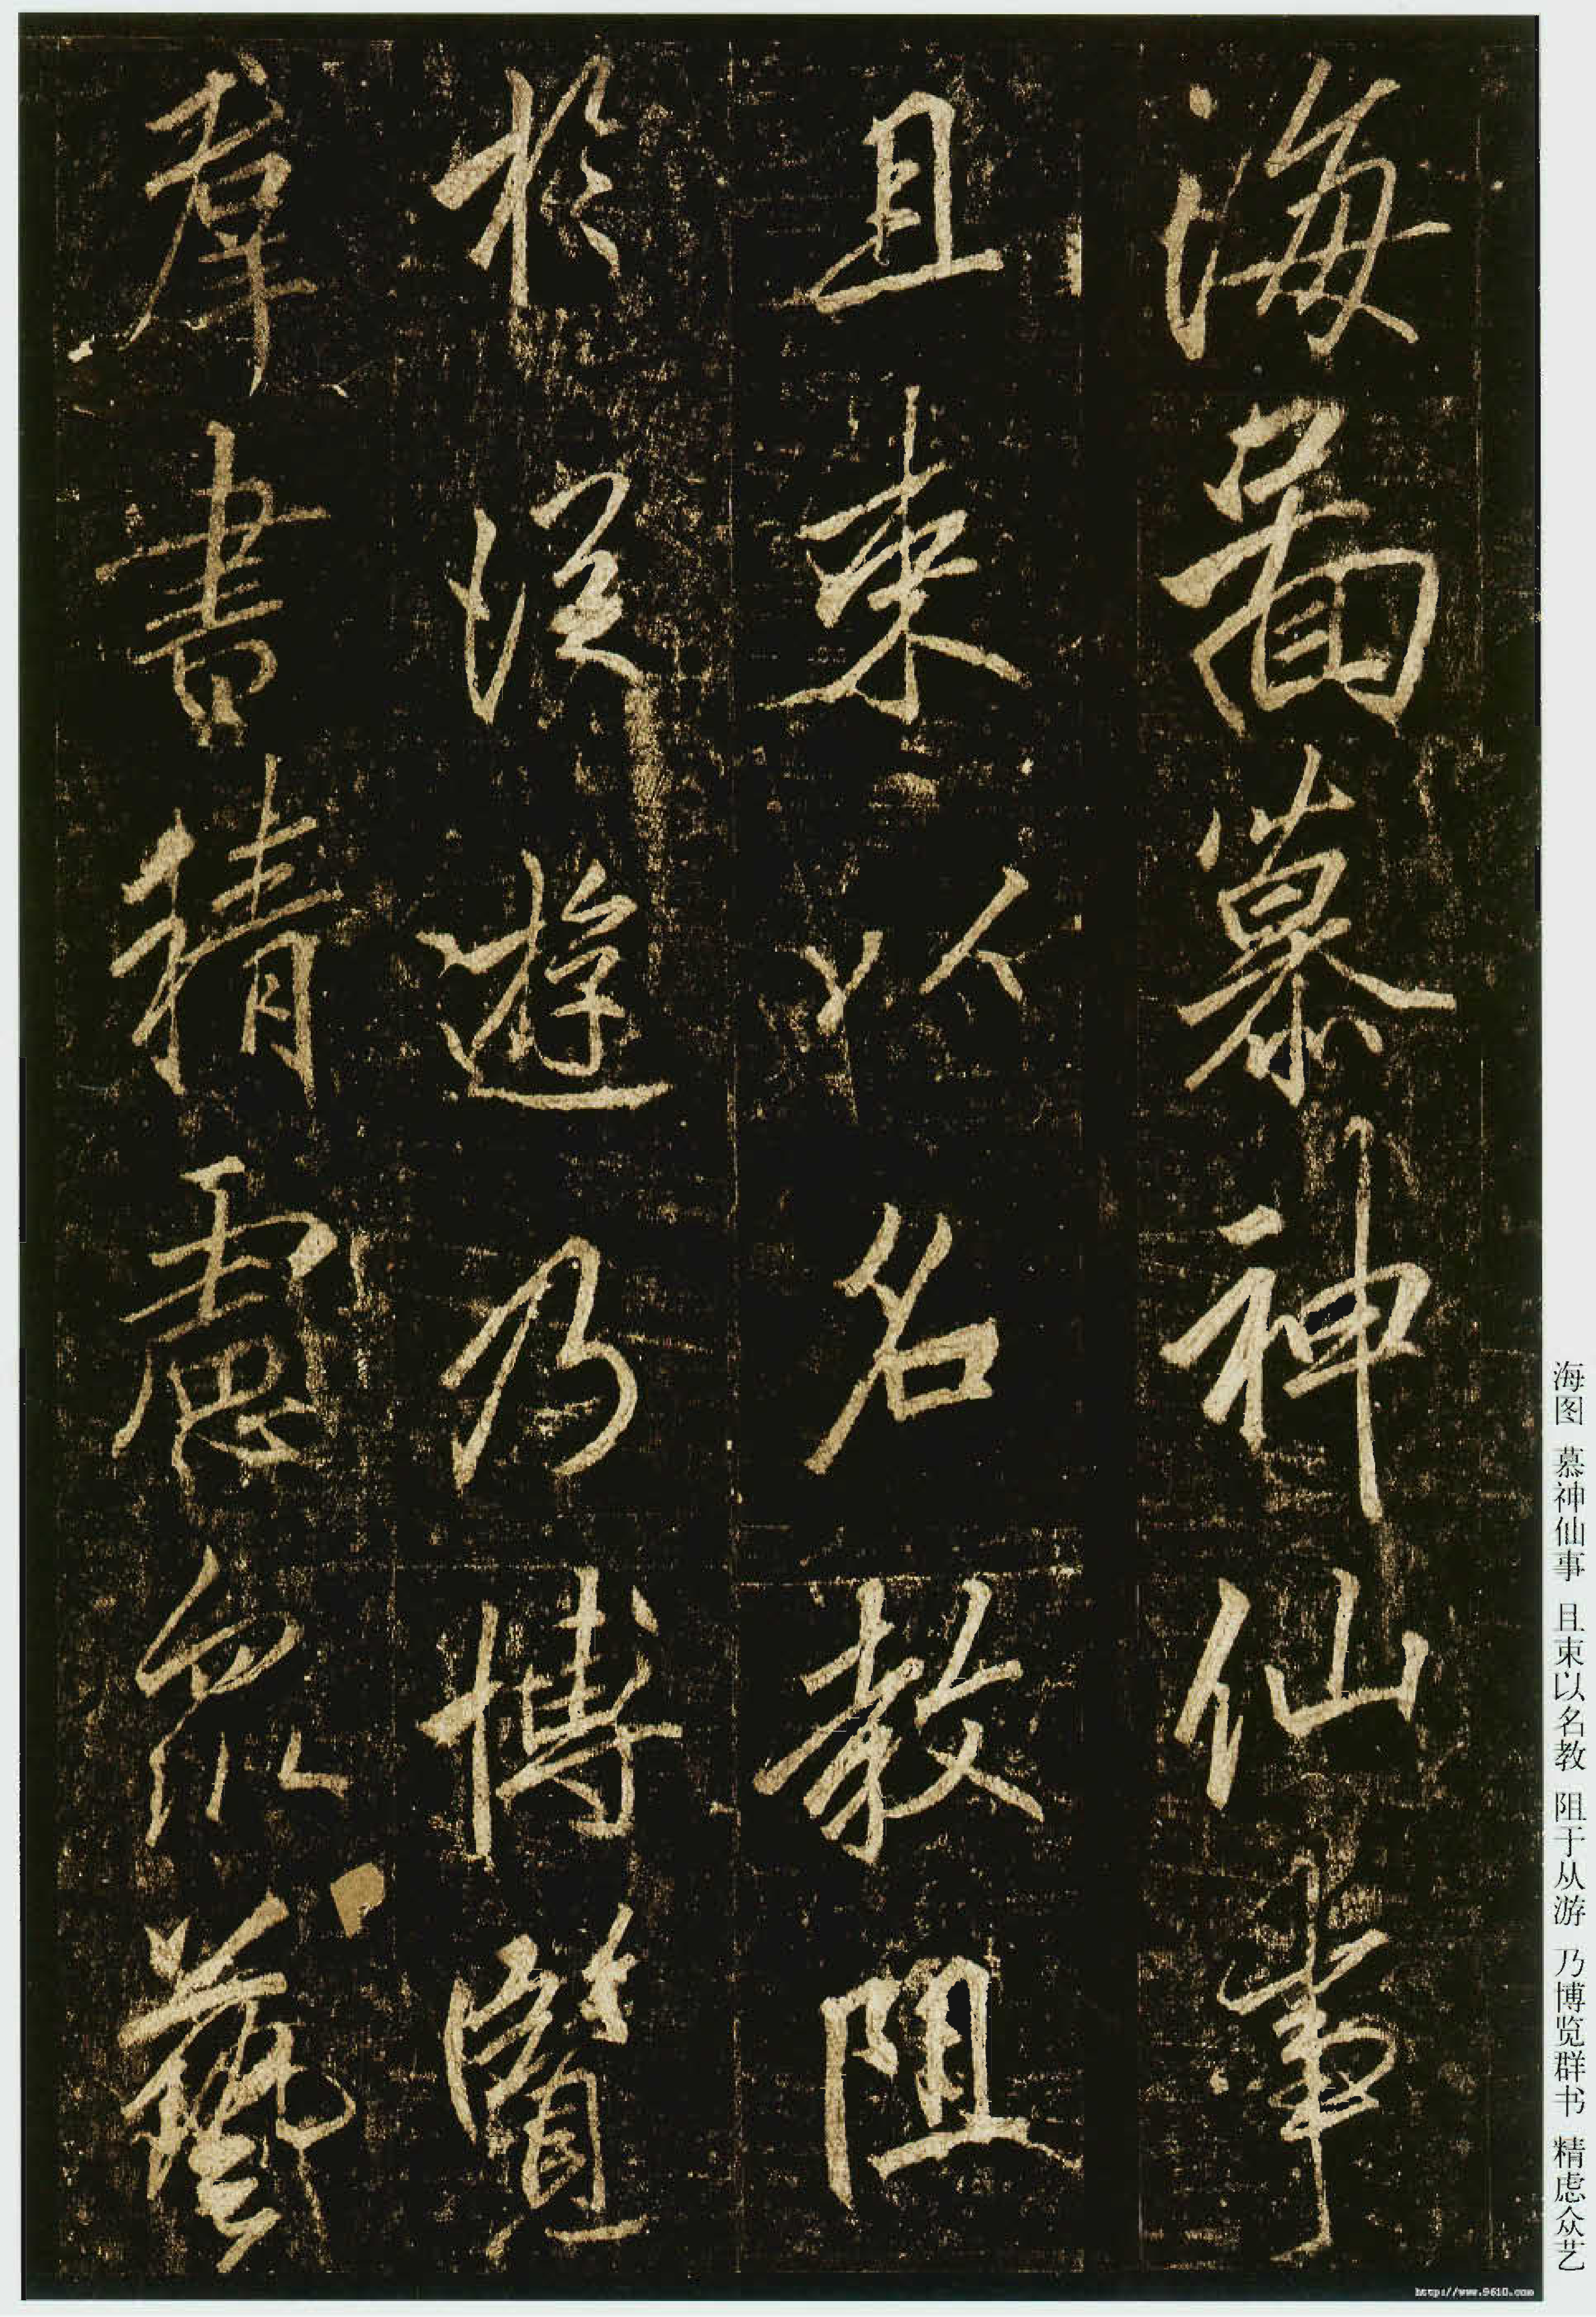 海啚慕神仙事
且束以名教阻
於従遊乃博覽
羣書精慮眾藝
海图 慕神仙事 且束以名教 阻于从游 乃博览群书 精虑众艺
http://www.9610.com